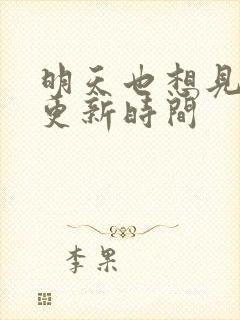 明天也想見
更新時間
李果